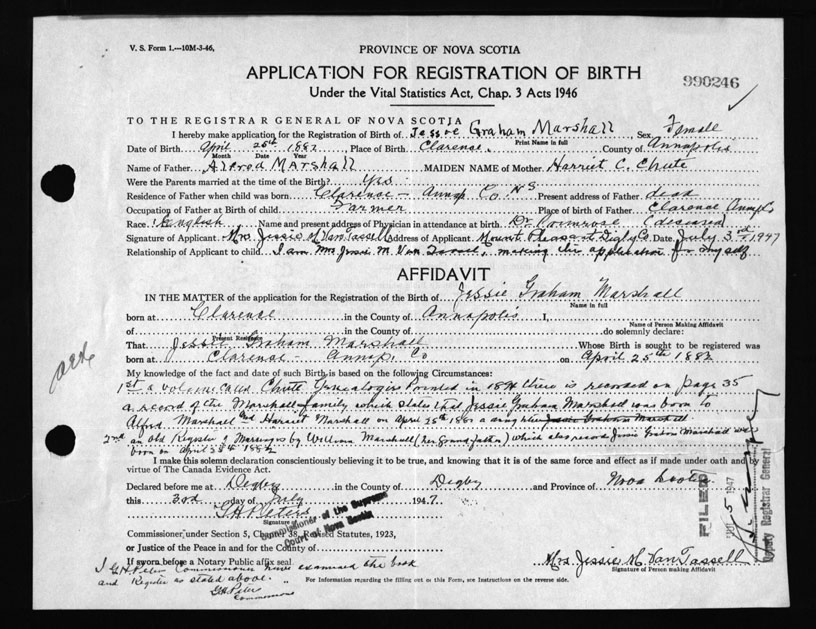 V. S. Form 1.—10M-3-46.
PROVINCE OF NOVA SCOTIA
APPLICATION FOR REGISTRATION OF BIRTH
990246
Under the Vital Statistics Act, Chap. 3 Acts 1946
TO THE REGISTRAR GENERAL OF NOVA SCOTIA
I hereby make application for the Registration of Birth of Jessie Graham Marshall Sex Female
Print Name in full
Date of Birth April 25th 1882 Place of Birth Clarence County of Annapolis
Month Date Year
Name of Father Alfred Marshall MAIDEN NAME of Mother Harriet C. Chute
Were the Parents married at the time of Birth? Yes
Residence of Father when child was born Clarence - Annap Co. N S Present address of Father dead
Occupation of Father at Birth of child Farmer Place of birth of Father Clarence Annap Co
Race English Name and present address of Physician in attendance at birth Dr Primrose (deceased)
Signature of Applicant Mrs Jessie M Van Tassell Address of Applicant Mount Pleasant Digby Co. Date July 3rd 1947
Relationship of Applicant to child I am Mrs Jessie M. Van Tassell, making this application for myself
AFFIDAVIT
IN THE MATTER of the application for the Registration of the Birth of Jessie Graham Marshall
Name in full
born at Clarence in the County of Annapolis I,
Name of Person Making Affidavit
of in the County of do solemnly declare:
Present Residence
That Jessie Graham Marshall Whose Birth is sought to be registered was
born at Clarence - Annap. Co on April 25th 1882
My knowledge of the fact and date of such Birth is based on the following Circumstances:
1st a volume called Chute Genealogies Printed in 1894 there is recorded on page 35
a record of the Marshall family which states that Jessie Graham Marshall was born to
Alfred Marshall and Harriet Marshall on April 25th 1882
2nd an old Register of Marriages by William Marshall (her Grandfather) which also records Jessie Graham Marshall was
born on April 25th 1882
I make this solemn declaration conscientiously believing it to be true, and knowing that it is of the same force and effect as if made under oath and by
virtue of The Canada Evidence Act.
Declared before me at Digby in the County of Digby and Province of Nova Scotia
this 3rd day of July 1947.
G H Peters
Signature of
Commissioner of the Supreme
Court of Nova Scotia
Commissioner under Section 5, Chapter 38, Revised Statutes, 1923,
or Justice of the Peace in and for the County of
If sworn before a Notary Public affix seal
Mrs Jessie M. Van Tassell
Signature of Person making Affidavit
I G H Peters Commissioner have examined the book
and Register as stated above.
G H Peters
Commissioner
For Information regarding the filling out of this Form, see Instructions on the reverse side.
FILED
5 1947
Deputy Registrar General